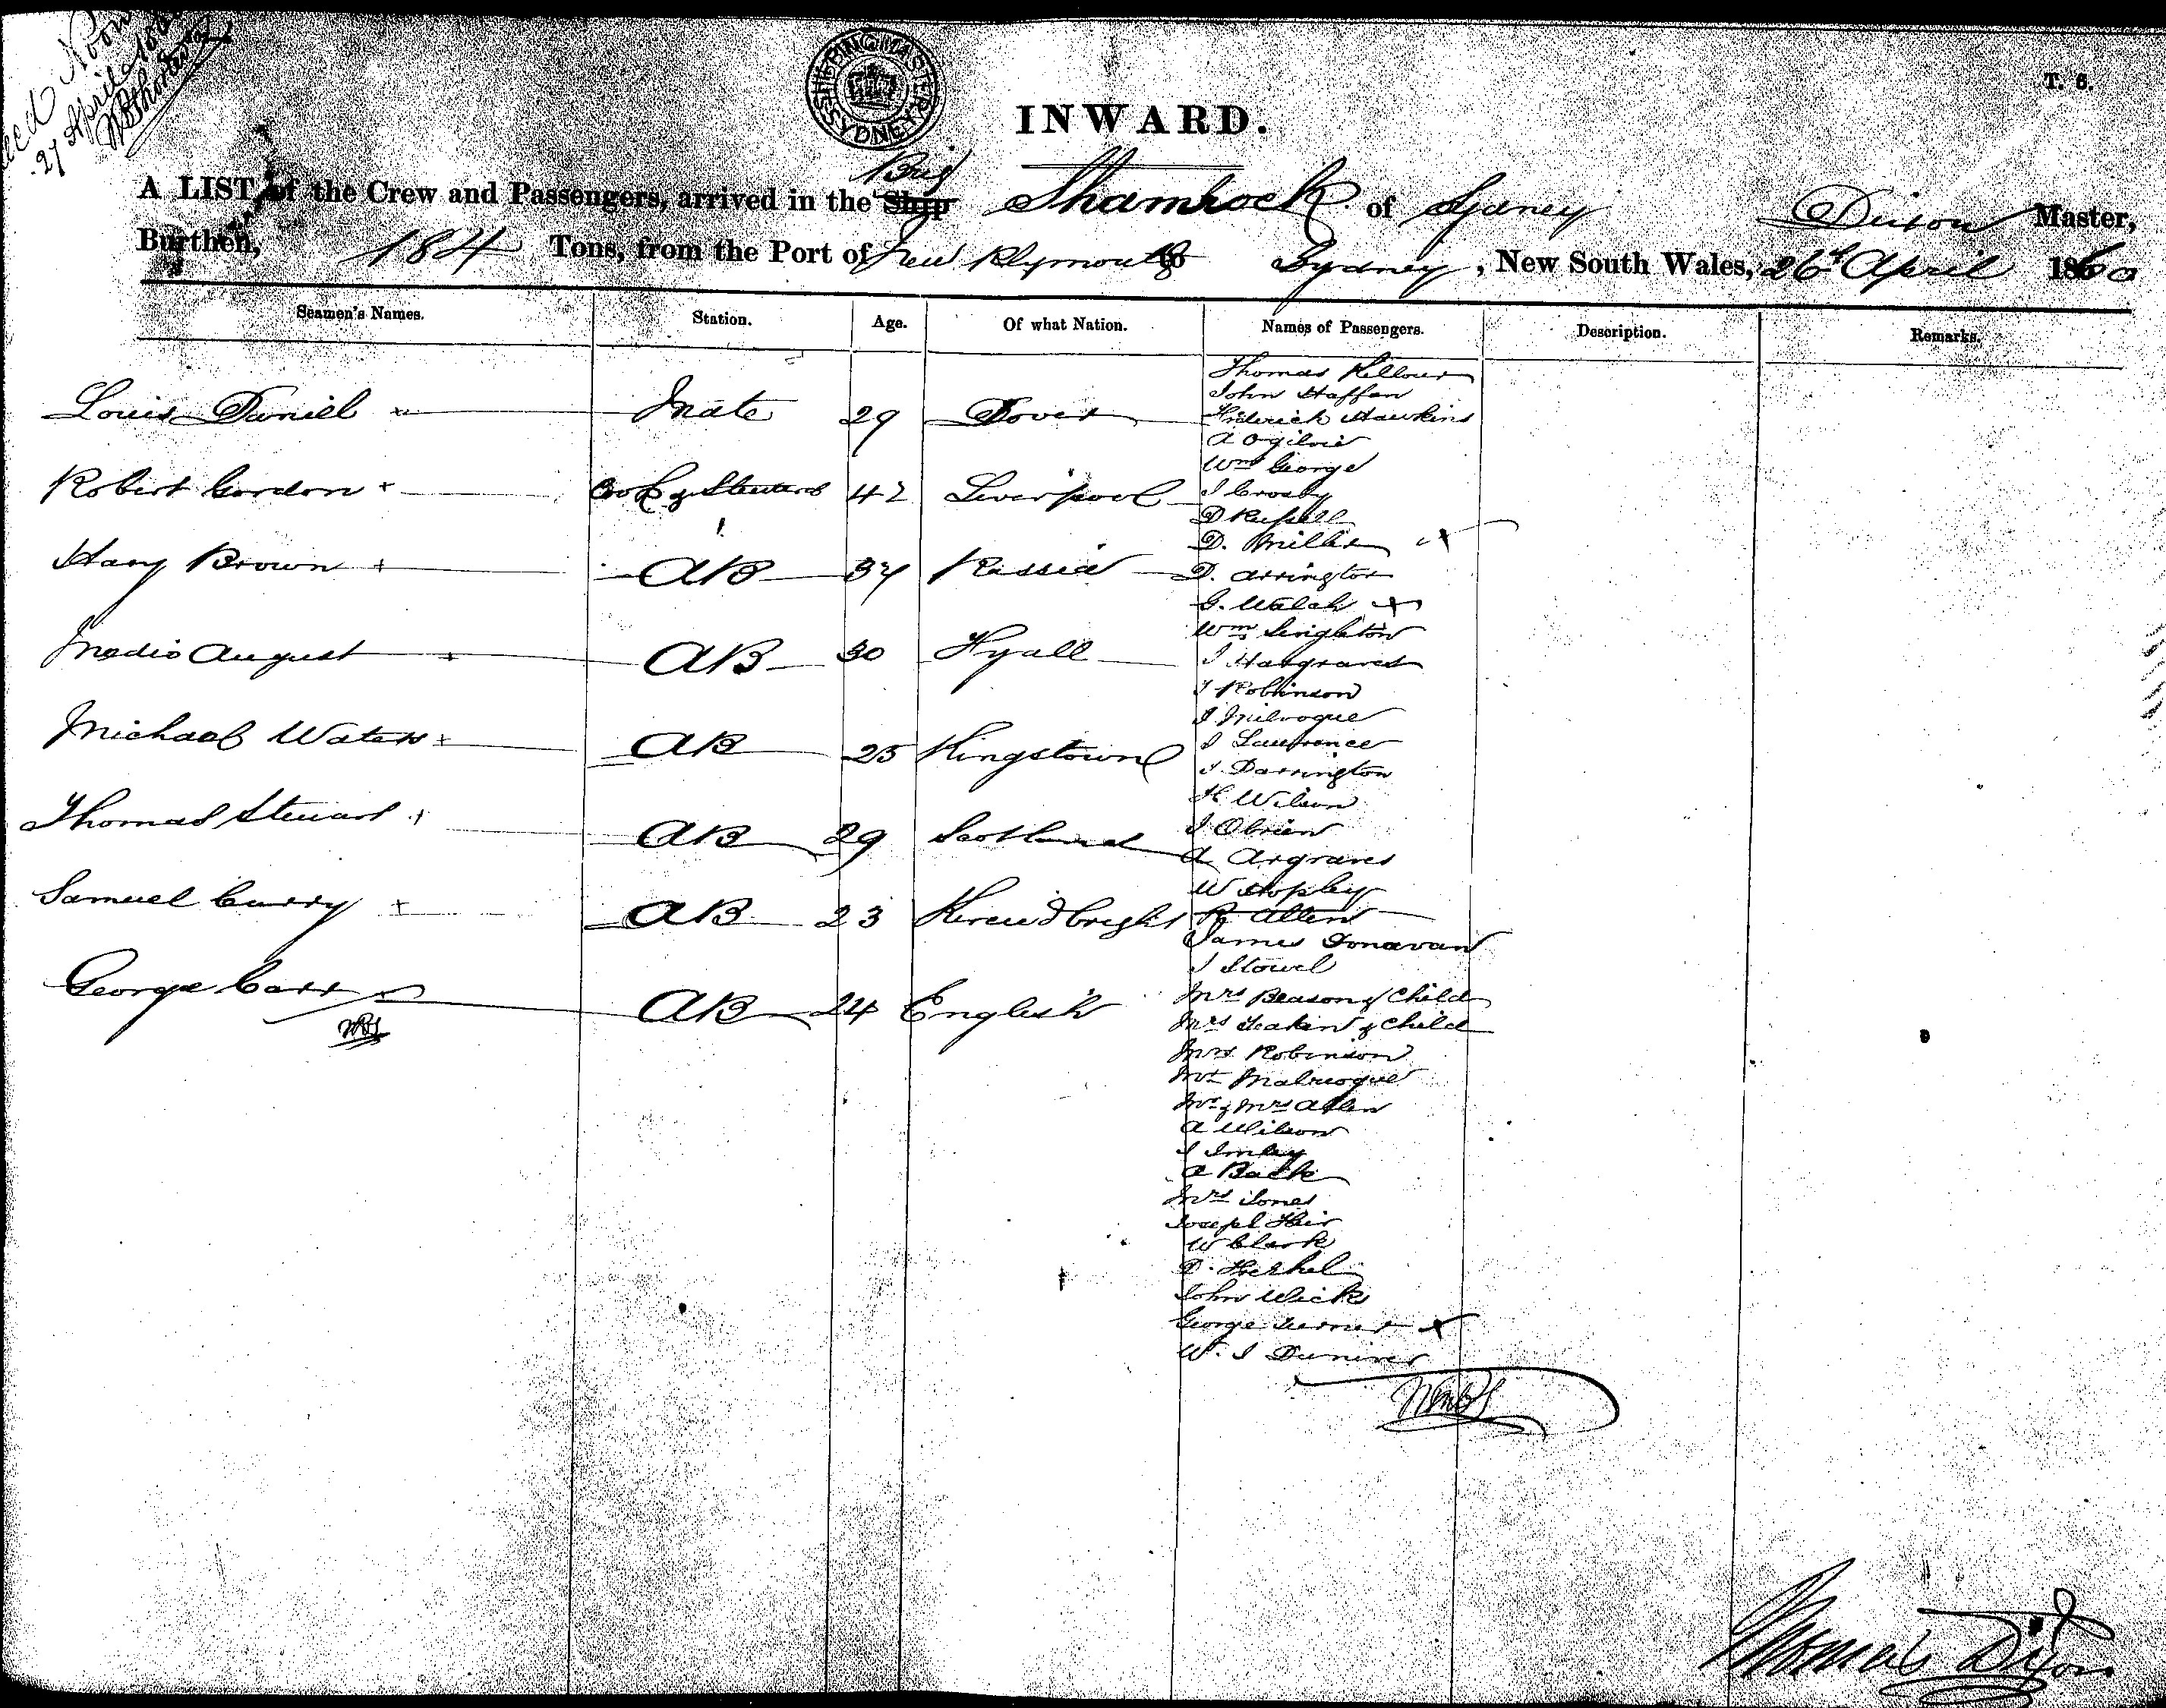 Noon
27 April 186
SHIPPING MASTER
SYDNEY
T. 6.
INWARD.
Brig
A LIST of the Crew and Passengers, arrived in the Ship Shamrock of Sydney Dixon Master,
Burthen, 184 Tons, from the Port of New Plymouth to Sydney, New South Wales, 26th April 1860
Seamen's Names. Station. Age. Of what Nation. Names of Passengers. Description. Remarks.
Louis Daniel Mate 29 Dover
Robert Gordon Cook & Steward 42 Liverpool
Harry Brown AB 34 Russia
August AB 30 Hyall
Michael Waters AB 25 Kingstown
Thomas Stewart AB 29 Scotland
Samuel Curry AB 23 Kircudbright
George Carr AB 24 English
Thomas
John Haffen
Frederick Hawkins
A Ogilvie
Wm George
J Crosby
D Russell
D. Miller
D. Arrington
G. Walsh
Wm Singleton
J Hargraves
J Robinson
J
J Lawrence
J. Darrington
H Wilson
J Obrien
A Argraves
W Hopley
R Allen
James Donavan
J Stowel
Mrs Beason & Child
Mrs & Child
Mrs Robinson
Mr & Mrs Allen
A Wilson
J Imlay
A Back
Mrs Jones
Joseph
W Clark
D.
John Wicks
George Turner
W. J
Thomas Dixon